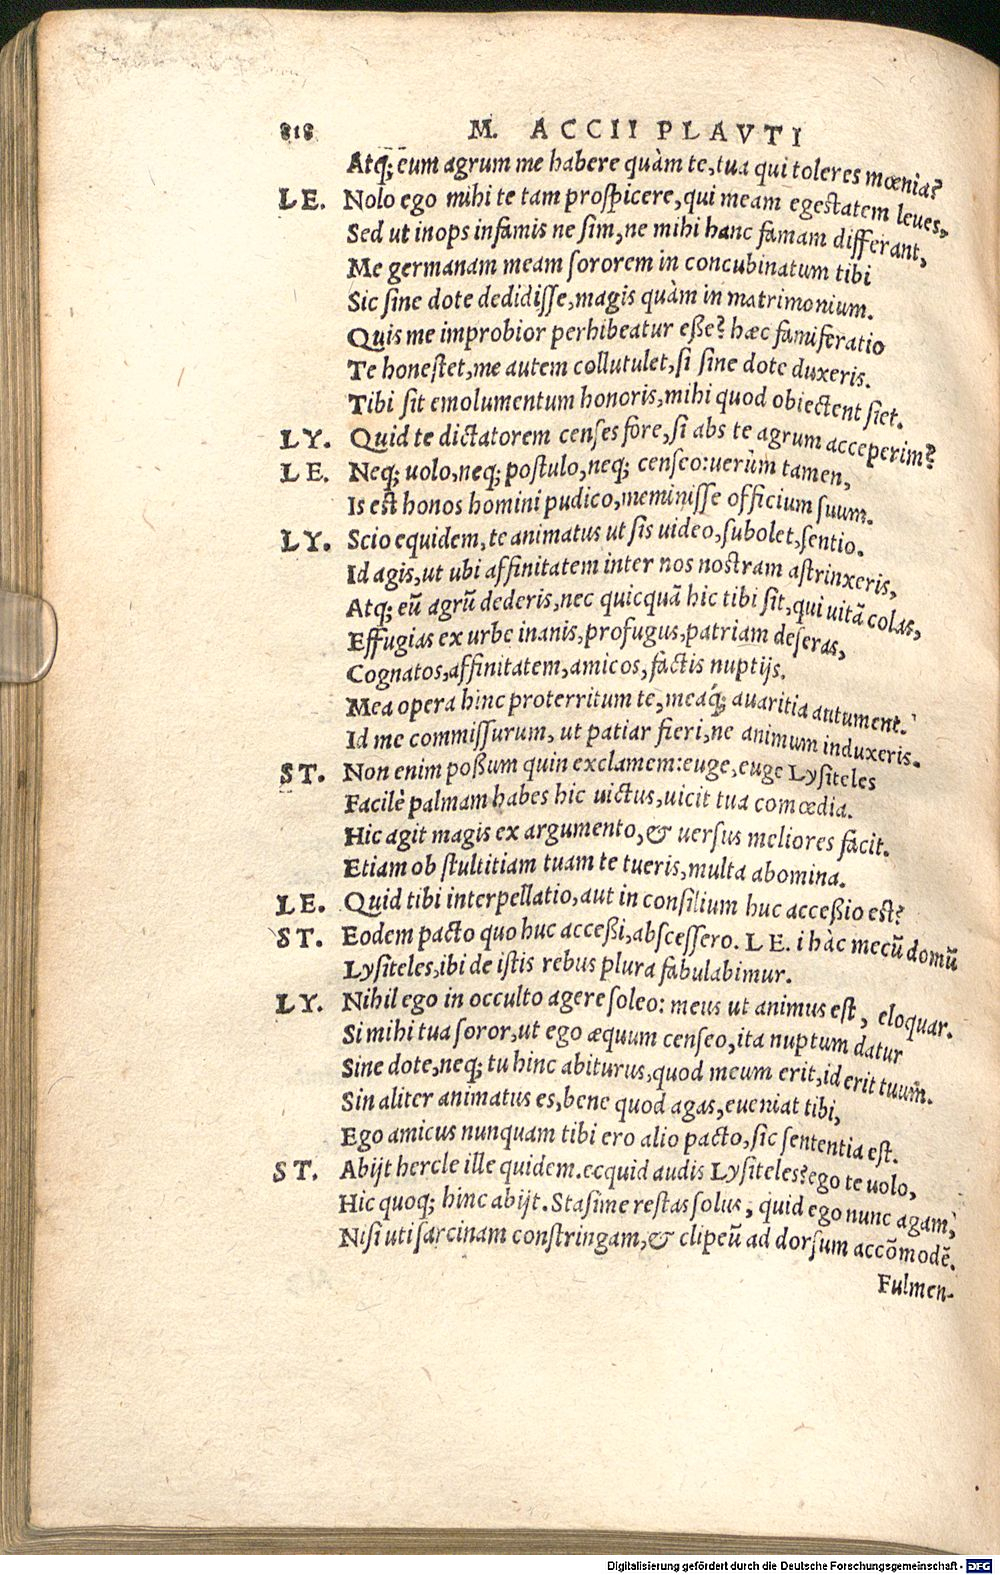 818 M. ACCII PLAVTI
Atq; eum agrum me habere quàm te, tua qui toleres mœnia?
LE. Nolo ego mihi te tam proſpicere, qui meam egeſtatem leues,
Sed ut inops infamis ne ſim, ne mihi hanc famam differant,
Me germanam meam ſororem in concubinatum tibi
Sic ſine dote dedidiſſe, magis quàm in matrimonium.
Quis me improbior perhibeatur eße? hæc famiferatio
Te honeſtet, me autem collutulet, ſi ſine dote duxeris.
Tibi ſit emolumentum honoris, mihi quod obiectent ſiet.
LY. Quid te dictatorem cenſes fore, ſi abs te agrum acceperim?
LE. Neq; uolo, neq; poſtulo, neq; cenſeo: uerùm tamen,
Is eſt honos homini pudico, meminiſſe officium ſuum.
LY. Scio equidem, te animatus ut ſis uideo, ſubolet, ſentio.
Id agis, ut ubi affinitatem inter nos noſtram aſtrinxeris,
Atq; eũ agrũ dederis, nec quicquã hic tibi ſit, qui uitã colas,
Effugias ex urbe inanis, profugus, patriam deſeras,
Cognatos, affinitatem, amicos, factis nuptijs.
Mea opera hinc proterritum te, meaq́; auaritia autument.
Id me commiſſurum, ut patiar fieri, ne animum induxeris.
ST. Non enim poßum quin exclamem: euge, euge Lyſiteles
Facilè palmam habes hic uictus, uicit tua comœdia.
Hic agit magis ex argumento, & uerſus meliores facit.
Etiam ob ſtultitiam tuam te tueris, multa abomina.
LE. Quid tibi interpellatio, aut in conſilium huc acceßio eſt?
ST. Eodem pacto quo huc acceßi, abſceſſero. LE. i hàc mecũ domũ
Lyſiteles, ibi de iſtis rebus plura fabulabimur.
LY. Nihil ego in occulto agere ſoleo: meus ut animus eſt, eloquar.
Si mihi tua ſoror, ut ego æquum cenſeo, ita nuptum datur
Sine dote, neq; tu hinc abiturus, quod meum erit, id erit tuum.
Sin aliter animatus es, bene quod agas, eueniat tibi,
Ego amicus nunquam tibi ero alio pacto, ſic ſententia eſt.
ST. Abijt hercle ille quidem. ecquid audis Lyſiteles? ego te uolo,
Hic quoq; hinc abijt. Staſime reſtas ſolus, quid ego nunc agam,
Niſi uti ſarcinam conſtringam, & clipeũ ad dorſum accõmodẽ.
Fulmen-
Digitalisierung gefördert durch die Deutsche Forschungsgemeinschaft - DFG